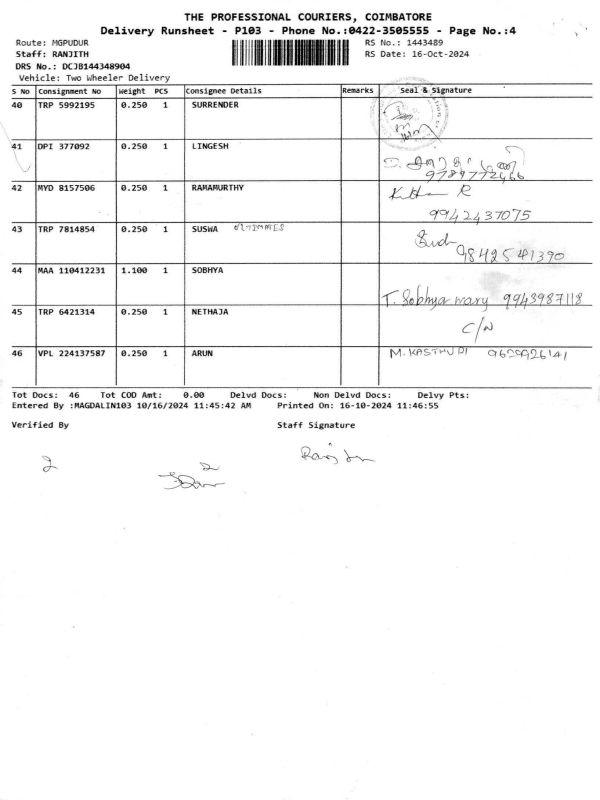 THE PROFESSIONAL COURIERS, COIMBATORE
Delivery Runsheet - P103 - Phone No.:0422-3505555 - Page No.:4
Route: MGPUDUR RS No.: 1443489
Staff: RANJITH RS Date: 16-Oct-2024
DRS No.: DCJB144348904
Vehicle: Two Wheeler Delivery
S No Consignment No Weight PCS Consignee Details Remarks Seal & Signature
40 TRP 5992195 0.250 1 SURRENDER
41 DPI 377092 0.250 1 LINGESH
9789772466
42 MYD 8157506 0.250 1 RAMAMURTHY R
9942437075
43 TRP 7814854 0.250 1 SUSWA
9842541390
44 MAA 110412231 1.100 1 SOBHYA
T. Sobhya mary 9943987118
45 TRP 6421314 0.250 1 NETHAJA C/N
46 VPL 224137587 0.250 1 ARUN M. KASTHURI 9629926141
Tot Docs: 46 Tot COD Amt: 0.00 Delvd Docs: Non Delvd Docs: Delvy Pts:
Entered By :MAGDALIN103 10/16/2024 11:45:42 AM Printed On: 16-10-2024 11:46:55
Verified By Staff Signature